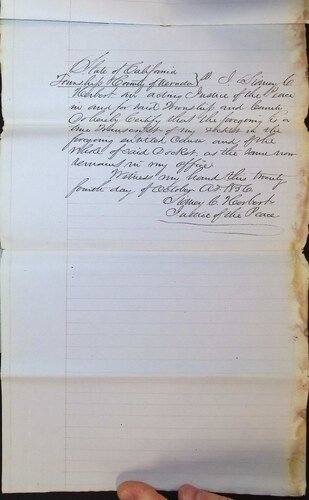 State of California
Township & County of } ss I, Sidney C
Herbert an acting Justice of the Peace
in and for said Township and County
do hereby certify that the foregoing is a
true transcript of my docket in the
foregoing entitled cause and of the
whole of said Docket, as the same now
remains in my office
Witness my hand this twenty
fourth day of October AD
Sidney C Herbert
Justice of the Peace